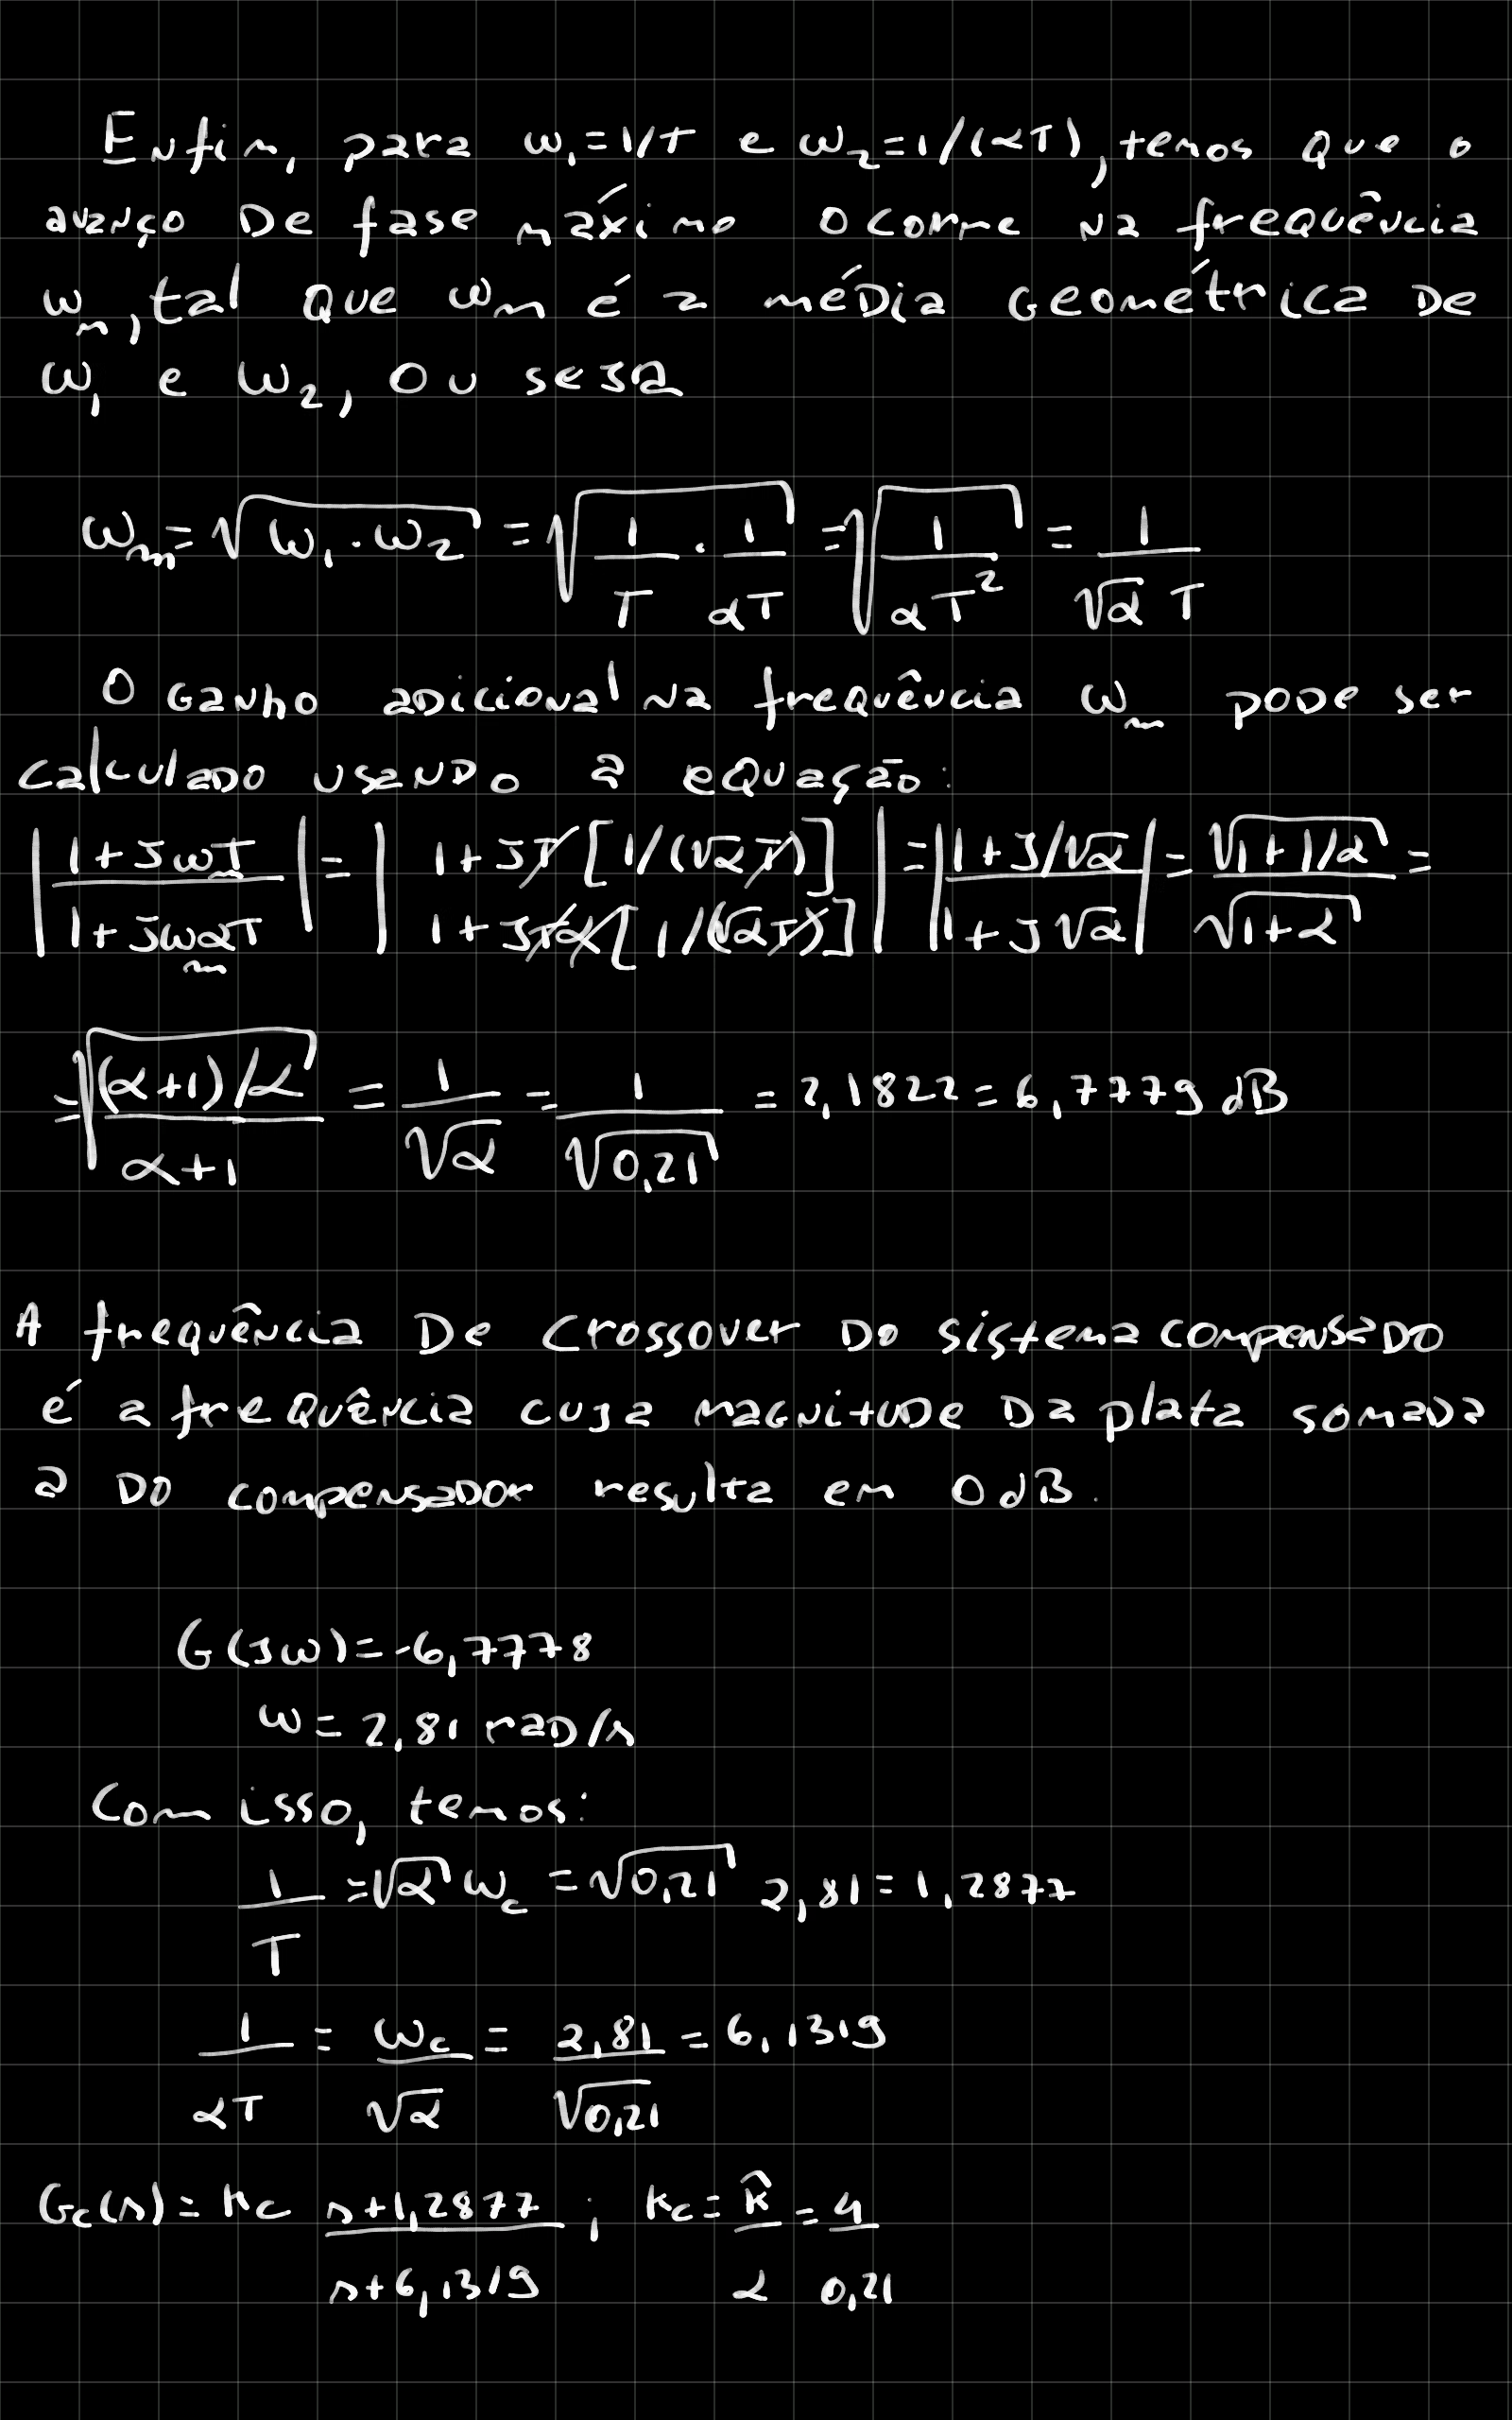 Enfim, para ω₁=1/T e ω₂=1/(αT), temos que o
avanço De fase máximo ocorre na frequência
ωₘ, tal que ωₘ é a média geométrica De
ω₁ e ω₂, ou seja
ωₘ = √(ω₁·ω₂) = √(1/T · 1/αT) = √(1/αT²) = 1/(√α T)
O ganho adicional na frequência ωₘ pode ser
calculado usando a equação:
|(1+jωₘT)/(1+jωₘαT)| = |(1+jT[1/(√αT)])/(1+jTα[1/(√αT)])| = |(1+j/√α)/(1+j√α)| = √(1+1/α)/√(1+α) =
= √(((α+1)/α)/(α+1)) = 1/√α = 1/√0,21 = 2,1822 = 6,7779 dB
A frequência De crossover Do sistema compensado
é a frequência cuja magnitude Da plata somada
a Do compensador resulta em 0 dB.
G(jω) = -6,7778
ω = 2,81 rad/s
Com isso, temos:
1/T = √α ω_c = √0,21 2,81 = 1,2877
1/αT = ω_c/√α = 2,81/√0,21 = 6,1319
G_c(s) = K_c (s+1,2877)/(s+6,1319) ; K_c = K̂/α = 4/0,21